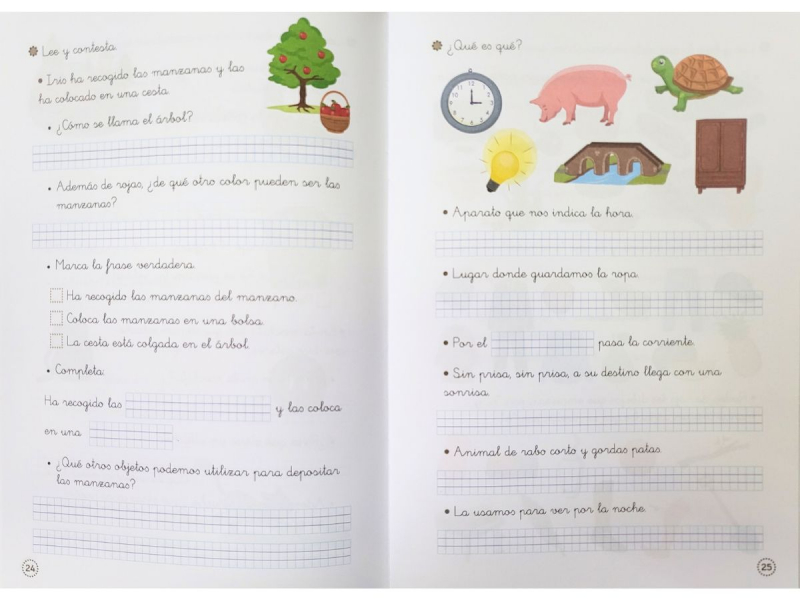 Lee y contesta.
Iris ha recogido las manzanas y las
ha colocado en una cesta.
¿Cómo se llama el árbol?
Además de rojas, ¿de qué otro color pueden ser las
manzanas?
Marca la frase verdadera.
Ha recogido las manzanas del manzano.
Coloca las manzanas en una bolsa.
La cesta está colgada en el árbol.
Completa:
Ha recogido las y las coloca
en una .
¿Qué otros objetos podemos utilizar para depositar
las manzanas?
24
¿Qué es qué?
12
1
2
3
4
5
6
7
8
9
10
11
Aparato que nos indica la hora.
Lugar donde guardamos la ropa.
Por el pasa la corriente.
Sin prisa, sin prisa, a su destino llega con una
sonrisa.
Animal de rabo corto y gordas patas.
La usamos para ver por la noche.
25